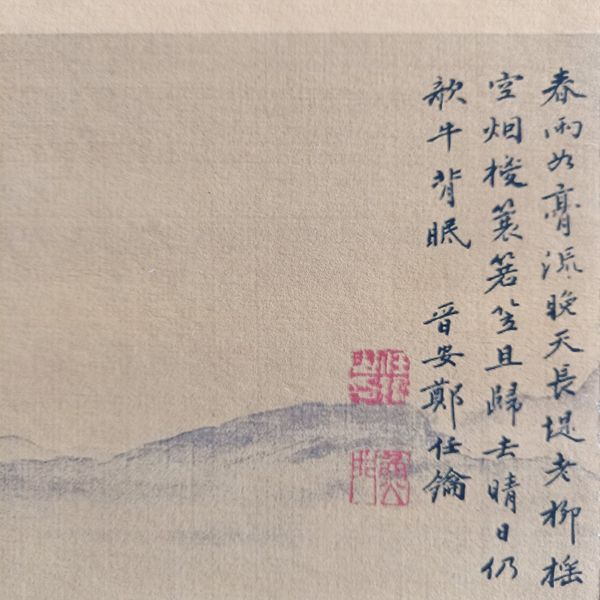 春雨如膏流晚天長堤老柳搖
空烟披蓑箬笠且歸去晴日仍
歌牛背眠 晉安鄭任鑰